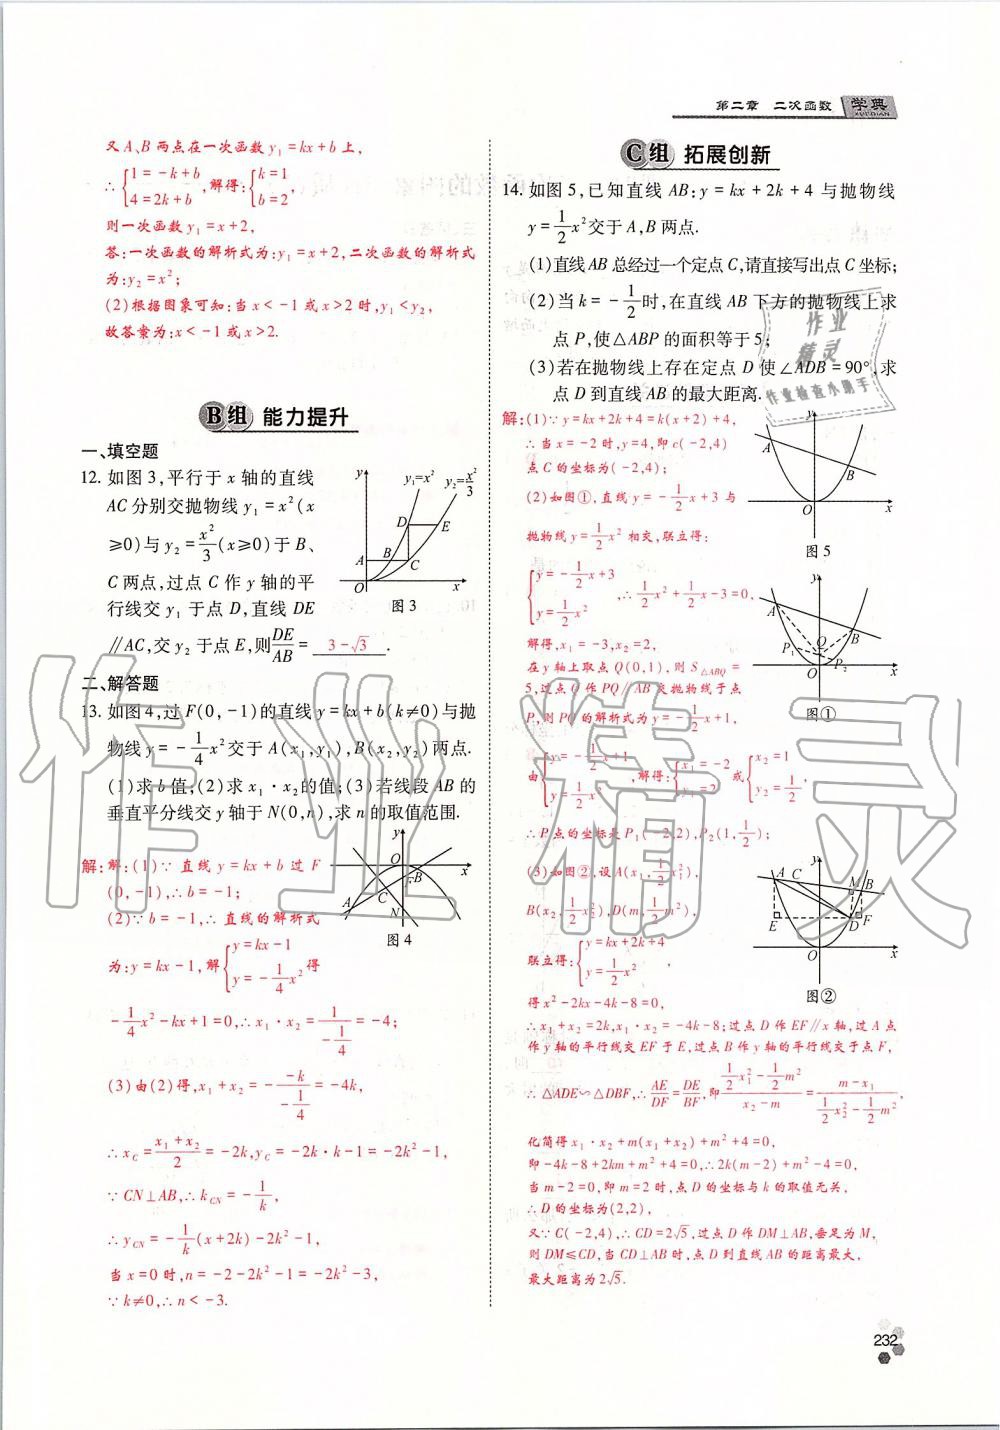 第二章 二次函数 学典
XUE DIAN
又A、B两点在一次函数y₁=kx+b上,
∴{1=-k+b 4=2k+b,解得:{k=1 b=2,
则一次函数y₁=x+2,
答:一次函数的解析式为:y₁=x+2,二次函数的解析式
为:y₂=x²;
(2)根据图象可知:当x<-1或x>2时,y₁<y₂,
故答案为:x<-1或x>2.
B组 能力提升
一、填空题
12. 如图3,平行于x轴的直线
AC分别交抛物线y₁=x²(x
≥0)与y₂=x²/3(x≥0)于B、
C两点,过点C作y轴的平
行线交y₁于点D,直线DE
∥AC,交y₂于点E,则DE/AB= 3-√3 .
y y₁=x² y₂=x²/3
D E
A B C
O x
图3
二、解答题
13. 如图4,过F(0,-1)的直线y=kx+b(k≠0)与抛
物线y=-1/4x²交于A(x₁,y₁),B(x₂,y₂)两点.
(1)求b值;(2)求x₁·x₂的值;(3)若线段AB的
垂直平分线交y轴于N(0,n),求n的取值范围.
解:解:(1)∵直线y=kx+b过F
(0,-1),∴b=-1;
(2)∵b=-1,∴直线的解析式
为:y=kx-1,解{y=kx-1 y=-1/4x²得
y
O x
B
F
C
A N
图4
-1/4x²-kx+1=0,∴x₁·x₂=1/(-1/4)=-4;
(3)由(2)得,x₁+x₂=-(-k)/(-1/4)=-4k,
∴x_C=(x₁+x₂)/2=-2k,y_C=-2k·k-1=-2k²-1,
∵CN⊥AB,∴k_CN=-1/k,
∴y_CN=-1/k(x+2k)-2k²-1,
当x=0时,n=-2-2k²-1=-2k²-3,
∵k≠0,∴n<-3.
C组 拓展创新
14. 如图5,已知直线AB:y=kx+2k+4与抛物线
y=1/2x²交于A,B两点.
(1)直线AB总经过一个定点C,请直接写出点C坐标;
(2)当k=-1/2时,在直线AB下方的抛物线上求
点P,使△ABP的面积等于5;
(3)若在抛物线上存在定点D使∠ADB=90°,求
点D到直线AB的最大距离.
解:(1)∵y=kx+2k+4=k(x+2)+4,
∴当x=-2时,y=4,即c(-2,4)
点C的坐标为(-2,4);
(2)如图①,直线y=-1/2x+3与
抛物线y=1/2x²相交,联立得:
y
A B
O x
图5
{y=-1/2x+3 y=1/2x²,∴1/2x²+1/2x-3=0,
解得,x₁=-3,x₂=2,
在y轴上取点Q(0,1),则S△ABQ=
5,过点Q作PQ∥AB交抛物线于点
P,则PQ的解析式为y=-1/2x+1,
y
A B
Q
P₁ P₂
O x
图①
由{y=-1/2x+1 y=1/2x²,解得:{x₁=-2 y₁=2或{x₂=1 y₂=1/2,
∴P点的坐标是P₁(-2,2),P₂(1,1/2);
(3)如图②,设A(x₁,1/2x₁²),
B(x₂,1/2x₂²),D(m,1/2m²),
联立得:{y=kx+2k+4 y=1/2x²,
得x²-2kx-4k-8=0,
y
A C M B
E D F
O x
图②
∴x₁+x₂=2k,x₁·x₂=-4k-8;过点D作EF∥x轴,过A点
作y轴的平行线交EF于E,过点B作y轴的平行线交于点F,
∴△ADE∽△DBF,∴AE/DF=DE/BF,即(1/2x₁²-1/2m²)/(x₂-m)=(m-x₁)/(1/2x₂²-1/2m²),
化简得x₁·x₂+m(x₁+x₂)+m²+4=0,
即-4k-8+2km+m²+4=0,∴2k(m-2)+m²-4=0,
当m-2=0,即m=2时,点D的坐标与k的取值无关,
∴D的坐标为(2,2),
又∵C(-2,4),∴CD=2√5,过点D作DM⊥AB,垂足为M,
则DM≤CD,当CD⊥AB时,点D到直线AB的距离最大,
最大距离为2√5.
作业
精灵
作业检查小助手
作业精灵
232